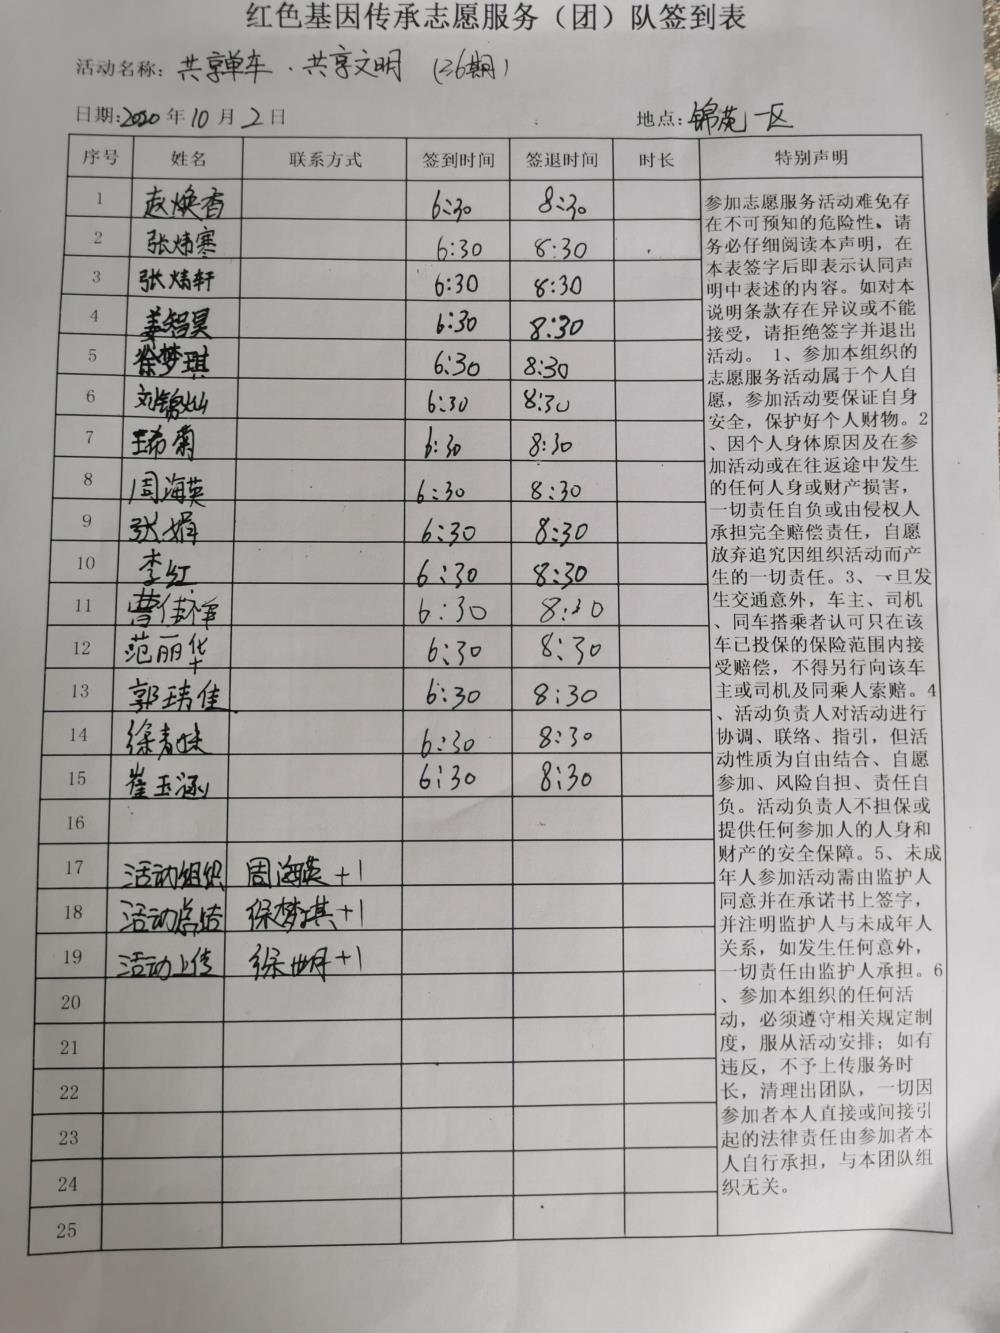 红色基因传承志愿服务（团）队签到表
活动名称：共享单车、共享文明（36期）
日期:2020年10月2日 地点:锦苑一区
序号 姓名 联系方式 签到时间 签退时间 时长 特别声明
1 赵焕香 6:30 8:30
2 张炜寒 6:30 8:30
3 张炜轩 6:30 8:30
4 姜智昊 6:30 8:30
5 徐梦琪 6:30 8:30
6 刘锦灿 6:30 8:30
7 王希菊 6:30 8:30
8 周海英 6:30 8:30
9 张娟 6:30 8:30
10 李红 6:30 8:30
11 曹佳 6:30 8:30
12 范丽华 6:30 8:30
13 郭玮佳 6:30 8:30
14 徐青妹 6:30 8:30
15 崔玉涵 6:30 8:30
16
17 活动组织 周海英+1
18 活动总结 徐梦琪+1
19 活动上传 徐+1
20
21
22
23
24
25
参加志愿服务活动难免存
在不可预知的危险性、请
务必仔细阅读本声明，在
本表签字后即表示认同声
明中表述的内容。如对本
说明条款存在异议或不能
接受，请拒绝签字并退出
活动。 1、参加本组织的
志愿服务活动属于个人自
愿，参加活动要保证自身
安全，保护好个人财物。2
、因个人身体原因及在参
加活动或在往返途中发生
的任何人身或财产损害，
一切责任自负或由侵权人
承担完全赔偿责任，自愿
放弃追究因组织活动而产
生的一切责任。3、一旦发
生交通意外，车主、司机
、同车搭乘者认可只在该
车已投保的保险范围内接
受赔偿，不得另行向该车
主或司机及同乘人索赔。4
、活动负责人对活动进行
协调、联络、指引，但活
动性质为自由结合、自愿
参加、风险自担、责任自
负。活动负责人不担保或
提供任何参加人的人身和
财产的安全保障。5、未成
年人参加活动需由监护人
同意并在承诺书上签字，
并注明监护人与未成年人
关系，如发生任何意外，
一切责任由监护人承担。6
、参加本组织的任何活
动，必须遵守相关规定制
度，服从活动安排；如有
违反，不予上传服务时
长，清理出团队，一切因
参加者本人直接或间接引
起的法律责任由参加者本
人自行承担，与本团队组
织无关。